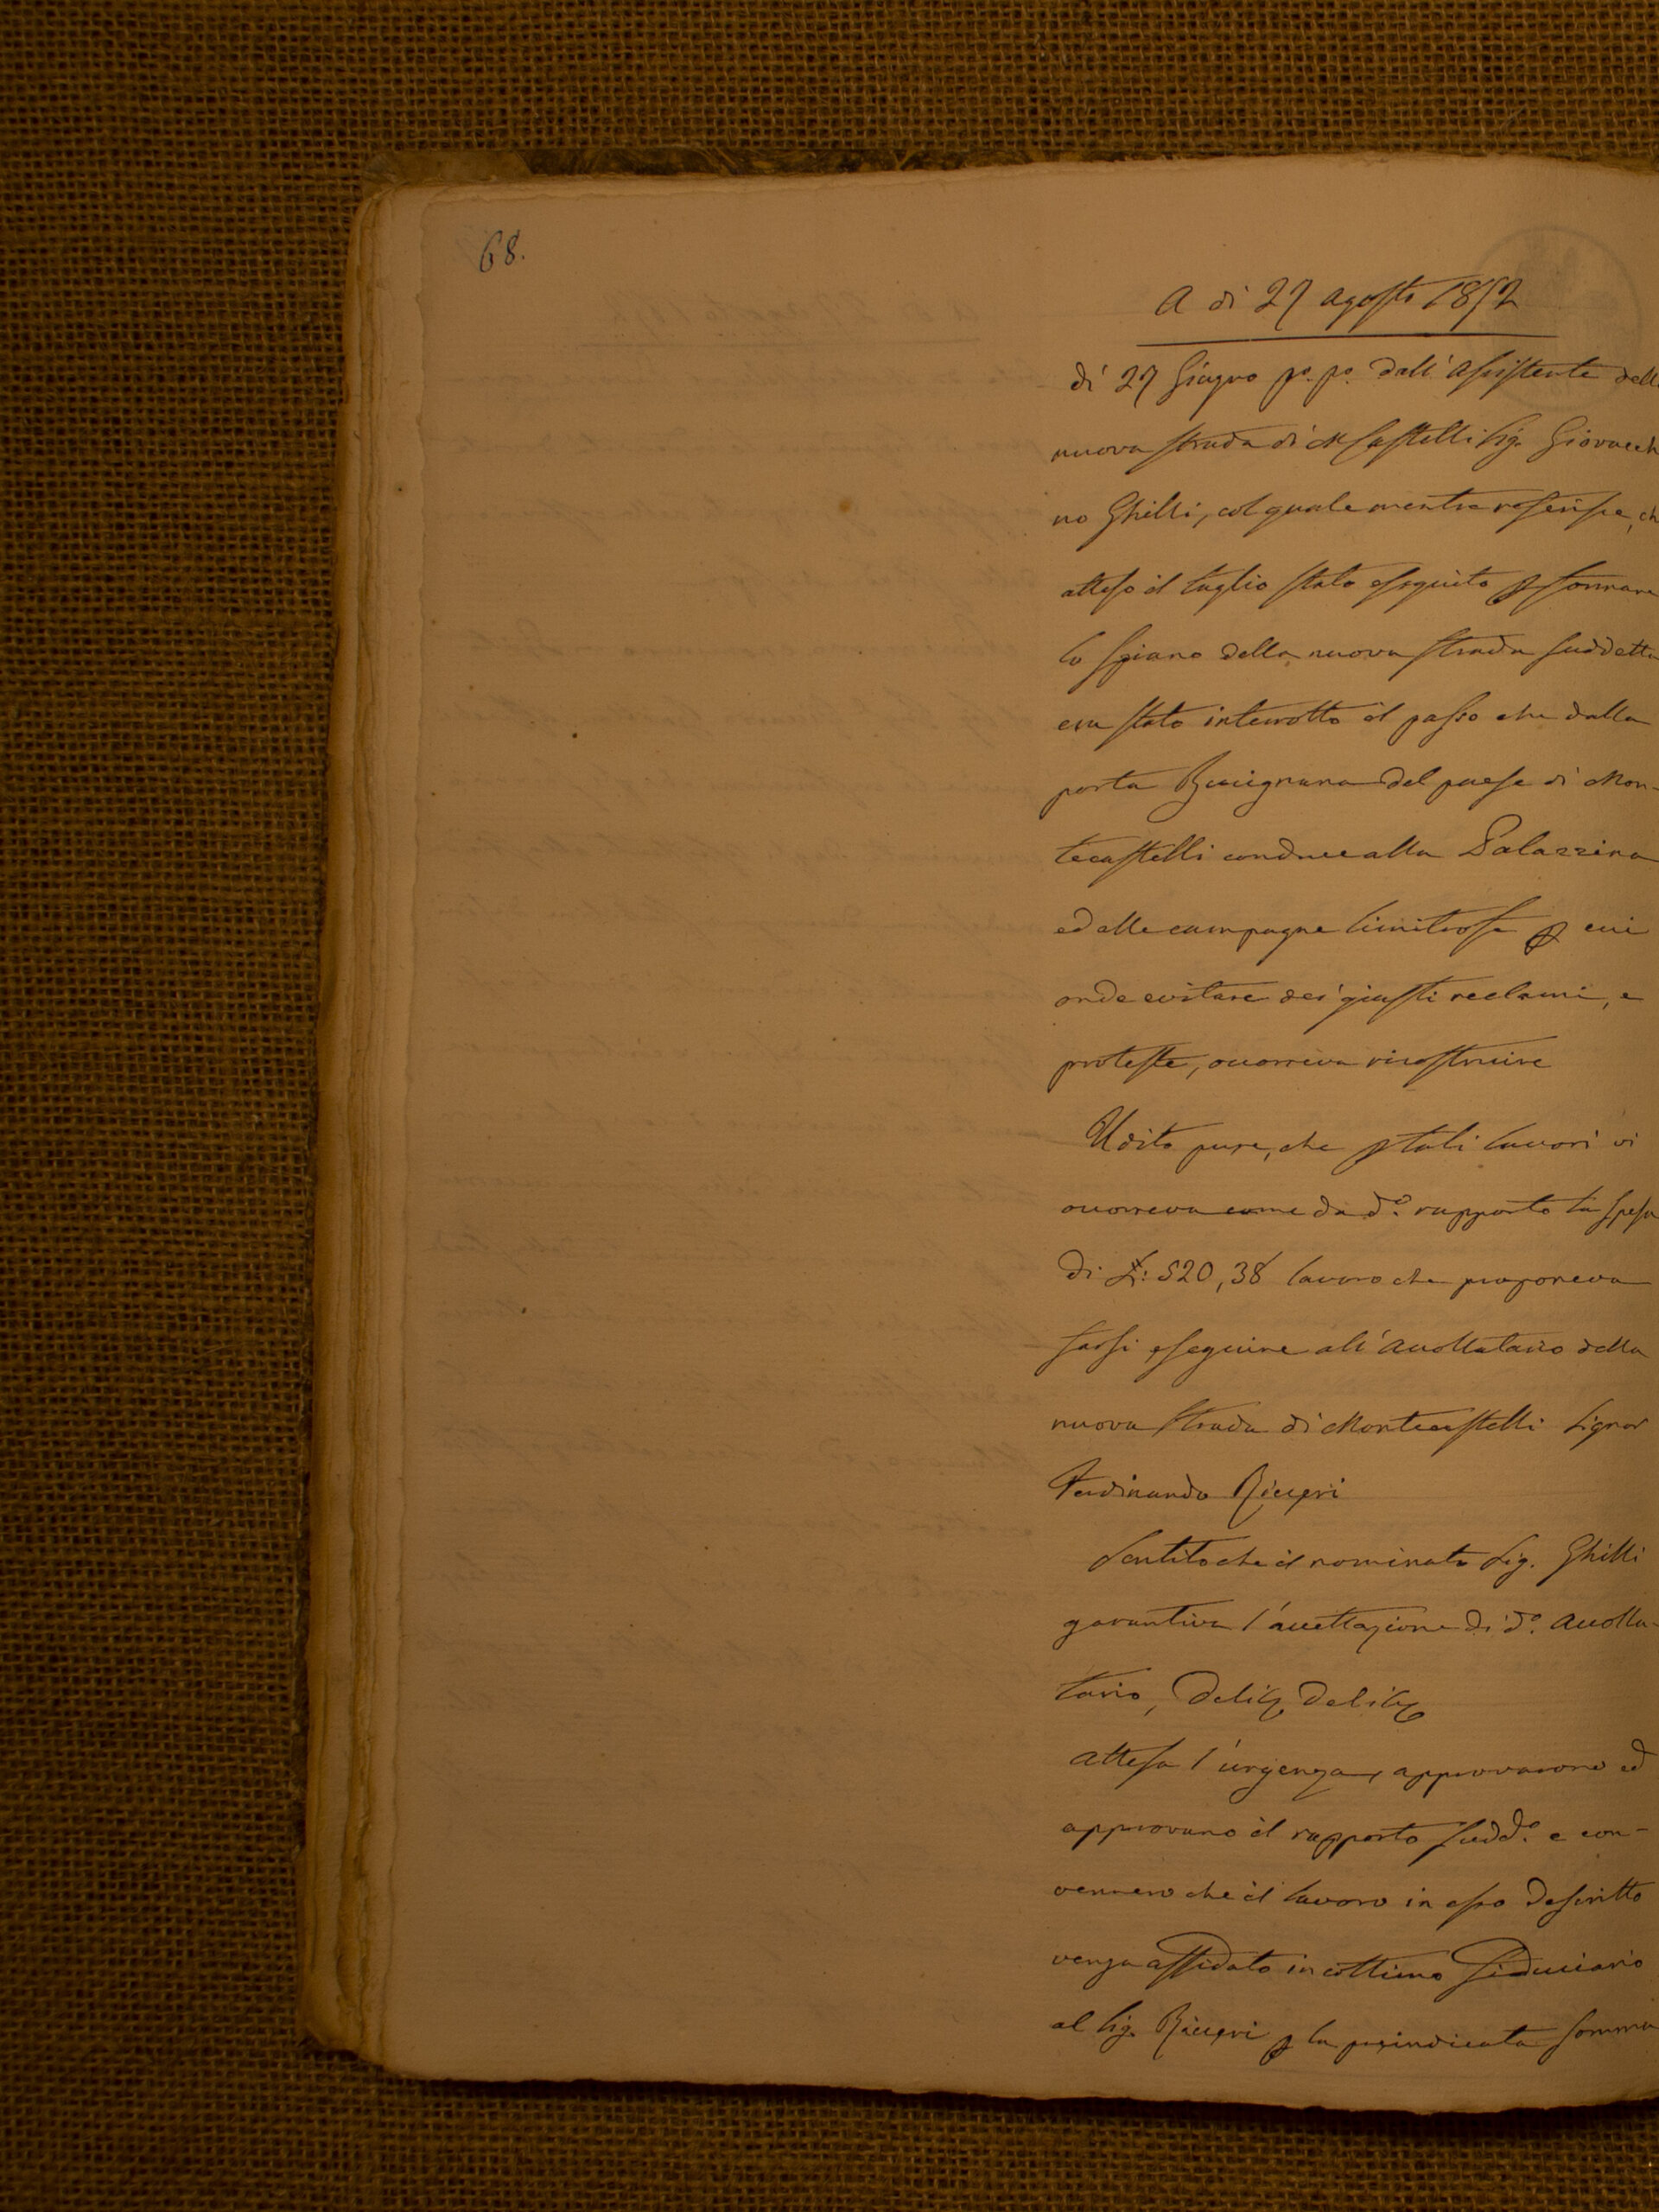 68.
A di 27 agosto 1852
di 27 Giugno p.o p.o dall'assistente dell
nuova strada di MCastelli Sig. Giovacch
no Ghilli, col quale mentre referisce, ch
atteso il taglio stato eseguito p formare
lo spiano della nuova strada suddetta
era stato interrotto il passo che dalla
porta del paese di Mon-
tecastelli conduce alla Palazzina
ed alle campagne limitrofe p cui
onde evitare dei giusti reclami, e
proteste, occorreva ricostruire
Udito pure, che p tali lavori vi
occorreva come da d.o rapporto la spesa
di £: 520,38 lavoro che proponeva
farsi eseguire all'accollatario della
nuova strada di Montecastelli Signor
Ferdinando
Sentito che il nominato Sig. Ghilli
garantiva l'accettazione di d.o accolla-
tario, Delib. Delib.
attesa l'urgenza, approvarono ed
approvano il rapporto sudd.o e con-
vennero che il lavoro in esso descritto
venga affidato in cottimo fiduciario
al Sig. p la preindicata somma